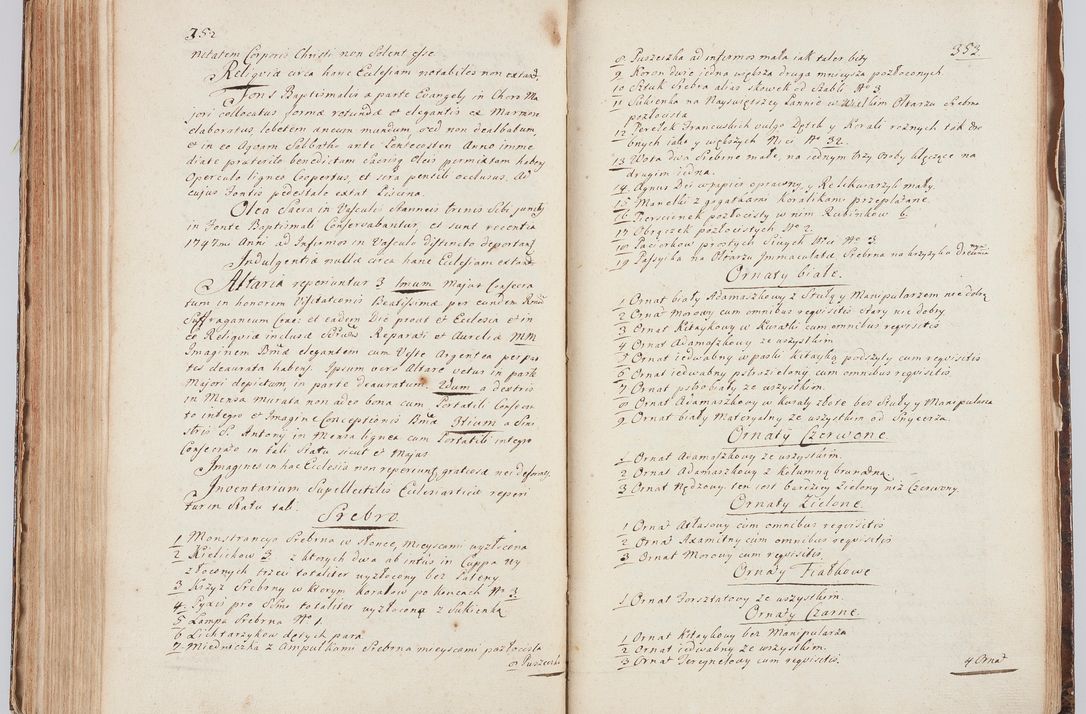 352
netatem Corporis Christi non Solent esse
Reliquiæ circa hanc Ecclesiam notabiles non extant.
Fons Baptismalis a parte Evangely in Choro Ma
jori collocatus formæ rotundæ et elegantis ex Marmore
elaboratus lebetem æneum mundum, sed non dealbatum,
et in eo Aquam Sabbatho ante Pentecosten Anno imme
diate præterito benedictam Sacroq Oleo permixtam habens
Operculo ligneo Coopertus, et sera pensili occlusus. Ad
cujus Fontis pedestale extat Piscina.
Olea Sacra in Vasculis stanneis trinis Sibi junctis
in Fonte Baptismali Conservabantur, et sunt recentia
1747mi Anni ad Infirmos in Vasculo distincto deportant
Indulgentiæ nullæ circa hanc Ecclesiam extant
Altaria reperiuntur 3 1mum Majus Consecra
tum in honorem Visitationis Beatissimæ per eundem
Suffraganeum Crac: et eadem Die prout et Ecclesia et in
eo Reliquiæ inclusæ Reparati et Aureliæ MM
Imaginem elegantem cum Veste Argentea per par
tes deaurata habens. Ipsum vero Altare vetus in parte
Majori depictum, in parte deauratum. 2dum a dextris
in Mensa murata non adeo bona cum Portatili Consecra
to integro et Imagine Conceptionis 3tium a Sini
stris S. Antony in Mensa lignea cum Portatili integro
Consecrato in tali Statu sicut et Majus
Imagines in hac Ecclesia non reperiunt gratiosæ nec deformes
Inventarium Supellectilis Ecclesiasticæ reperi
tur in Statu tali.
Srebro.
1 Monstrancya Srebrna w Słonce, mieyscami wyzłocona
2 Kielichow 3 z ktorych dwa ab intus in Cuppa wy
złoconych trzeci totaliter wyzłocony bez Pateny
3 Krzyż Srebrny w ktorym koralow po koncach No 3
4 Pyxis pro totaliter wyzłocona z Sukienką
5 Lampa Srebrna No 1.
6 Lichtarzykow dętych para
7 Miedniczka z Ampułkami Srebrna mieyscami pozłocista
8 Puszeczka
353
8 Puszeczka ad infirmos mała iak taler bity
9 Koron dwie iedna większa druga mnieysza pozłoconych
10 Sztuk Srebra alias skowek od Szabli No 3
11 Sukienka na Nayswiętszey Pannie w Wielkim Ołtarzu Srebrna
pozłocista
12 Perełek Francuskich vulgo Dętek y Korali roznych tak dro
bnych iako y większych Nici No 32.
13 Wota dwa Srebrne małe, na iednym trzy Osoby klęczące na
drugim iedna.
14 Agnus Dei w papier oprawny, y Relikwiarzyk mały.
15 Manelki z gagatkami koralikami przeplatane.
16 Pierscionek pozłocisty w nim Rubinkow 6.
17 Obrączek pozłocistych No 2.
18 Paciorkow prostych Siwych Nici No 3
19 Passyika na Ołtarzu Immaculatæ Srebrna na krzyżyku
Ornaty białe.
1 Ornat biały Adamaszkowy z Stułą y Manipularzem nie dobry
2 Ornat Morowy cum omnibus requisitis stary nie dobry
3 Ornat Kitaykowy w Kwiatki cum omnibus requisitis
4 Ornat Adamaszkowy ze wszystkim
5 Ornat iedwabny w paski kitayką podszyty cum requisitis
6 Ornat iedwabny pstrozielony cum omnibus requisitis
7 Ornat pstrobiały ze wszystkim.
8 Ornat Adamaszkowy w kwiaty złote bez Stuły y Manipularza
9 Ornat biały Materyalny ze wszystkim od Snycerza.
Ornaty Czerwone.
1 Ornat Adamaszkowy ze wszystkim.
2 Ornat Adamaszkowy z Kolumną brunatną.
3 Ornat Nędzowy ten iest bardziey Zielony niż Czerwony.
Ornaty Zielone.
1 Ornat Atłasowy cum omnibus requisitis
2 Ornat Axamitny cum omnibus requisitis
3 Ornat Morowy cum requisitis.
Ornaty Fiałkowe
1 Ornat Forsztatowy ze wszystkim.
Ornaty Czarne.
1 Ornat Kitaykowy bez Manipularza
2 Ornat iedwabny ze wszystkim.
3 Ornat Terynelowy cum requisitis.
4 Ornat